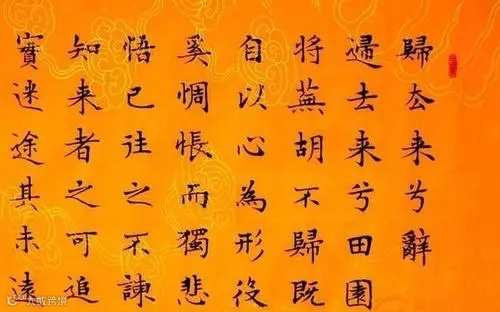 歸去来兮辭
歸去来兮田園
将蕪胡不歸既
自以心為形役
奚惆悵而獨悲
悟已往之不諫
知来者之可追
實迷途其未遠
大数跨境